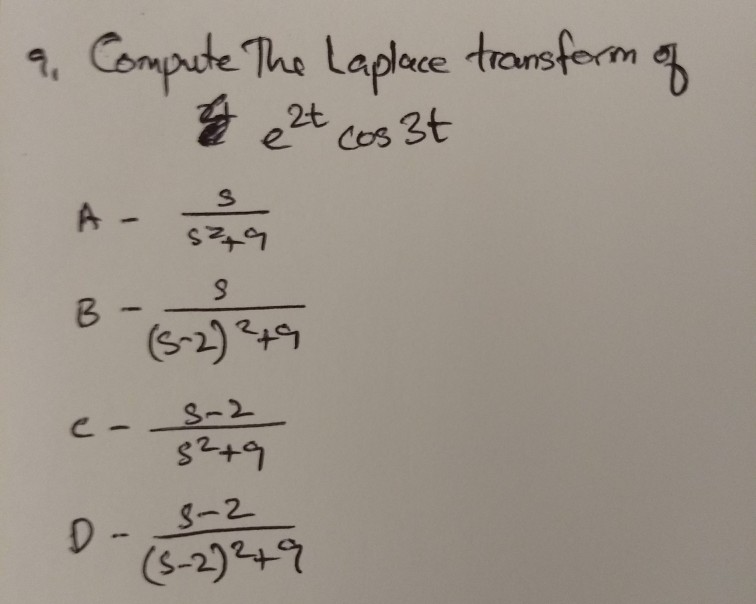 9. Compute The Laplace transform of
e^2t cos 3t
A - s/(s²+9)
B - s/((s-2)²+9)
C - (s-2)/(s²+9)
D - (s-2)/((s-2)²+9)